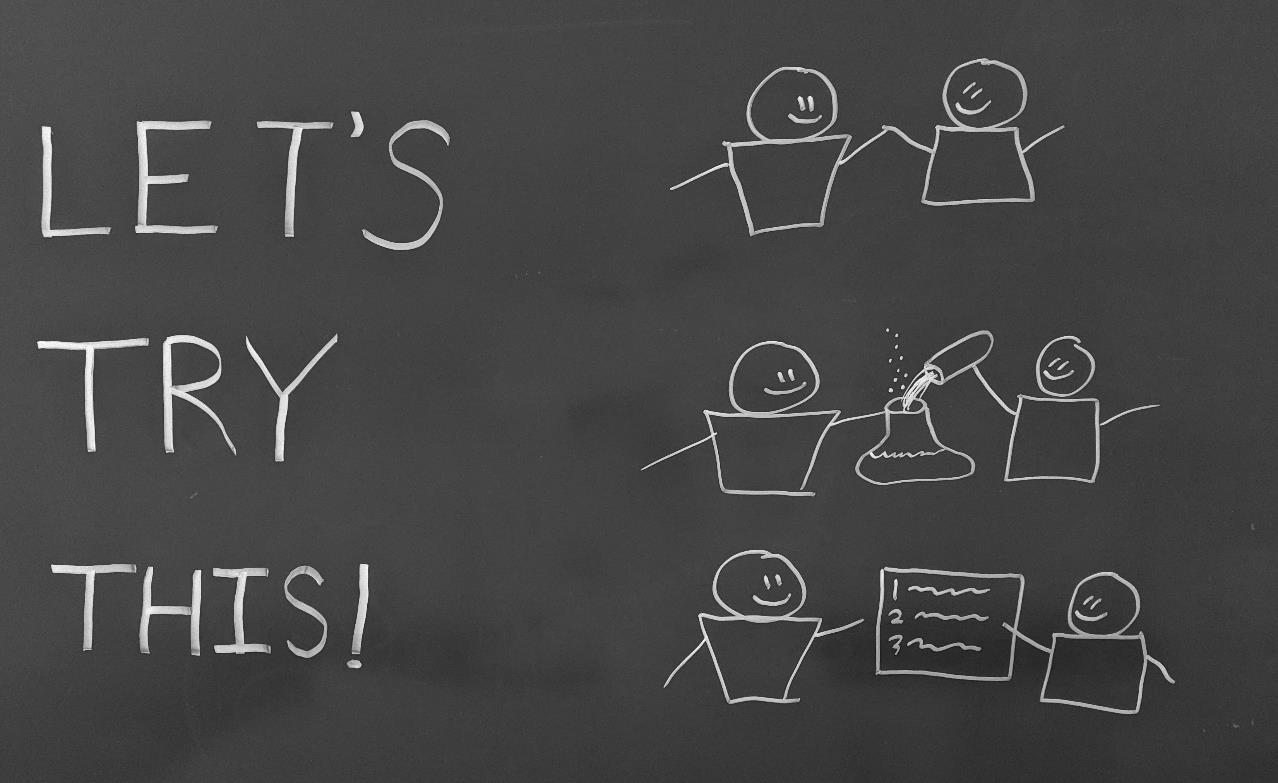 LET'S
TRY
THIS!
1
2
3